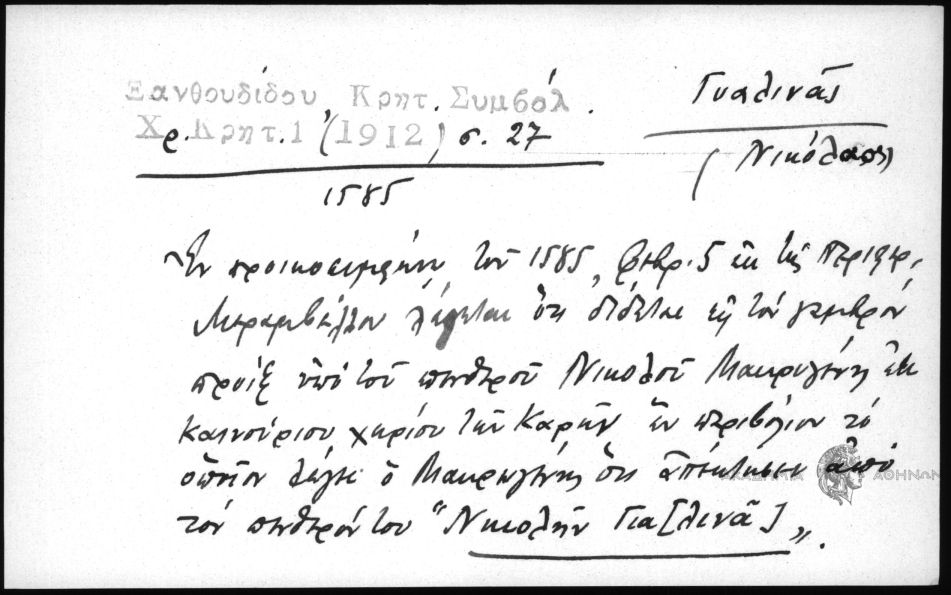 Ξανθουδίδου, Κρητ. Συμβόλ.
Χρ. Κρητ. 1 (1912) σ. 27
Γυαλινᾶς
(Νικόλαος)
1585
Ἐν προικοσυμφώνῳ τοῦ 1585, Φεβρ. 5 ἐκ τῆς Περιφερ.
Μεραμβέλλου λέγεται ὅτι δίδεται εἰς τὸν γαμβρόν
προίξ ὑπό τοῦ πενθεροῦ Νικολοῦ Μακρυγένη ἐκ
Καινούριου χωρίου τῶν Καρῶν ἕν περιβόλιον τό
ὁποῖον λέγει ὁ Μακρυγένης ὅτι ἀπέκτησεν ἀπό
τόν πενθερόν του "Νικολῆν Για[λινᾶ]".
ΑΚΑΔΗΜΙΑ ΑΘΗΝΩΝ